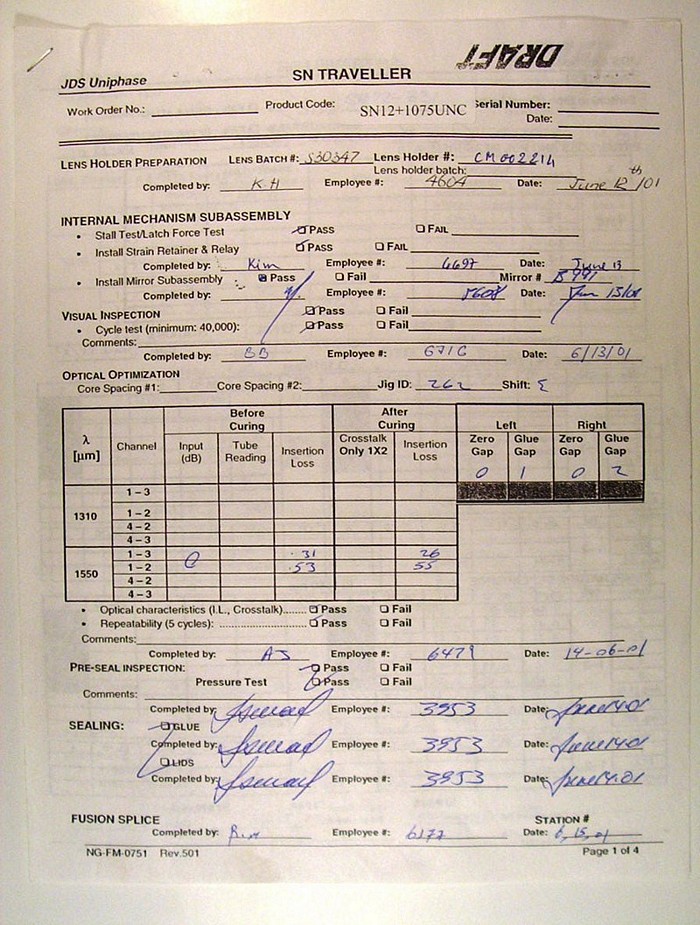 DRAFT
JDS Uniphase SN TRAVELLER
Work Order No.: Product Code: SN12+1075UNC Serial Number:
Date:
LENS HOLDER PREPARATION LENS BATCH #: S30347 Lens Holder #: CM002214
Lens holder batch:
Completed by: K.H Employee #: 4604 Date: June 12th/01
INTERNAL MECHANISM SUBASSEMBLY
• Stall Test/Latch Force Test Pass FAIL
• Install Strain Retainer & Relay Pass FAIL
Completed by: Kim Employee #: 6697 Date: June 13
• Install Mirror Subassembly Pass Fail Mirror #
Completed by: Employee #: 5608 Date: Jun 13/01
VISUAL INSPECTION Pass Fail
• Cycle test (minimum: 40,000): Pass Fail
Comments:
Completed by: BB Employee #: 671C Date: 6/13/01
OPTICAL OPTIMIZATION
Core Spacing #1: Core Spacing #2: Jig ID: 262 Shift:
Before Curing After Curing Left Right
λ [μm] Channel Input (dB) Tube Reading Insertion Loss Crosstalk Only 1X2 Insertion Loss Zero Gap Glue Gap Zero Gap Glue Gap
0 1 0 2
1310
1 – 3
1 – 2
4 – 2
4 – 3
1550
1 – 3 .31 26
1 – 2 .53 55
4 – 2
4 – 3
• Optical characteristics (I.L., Crosstalk)...... Pass Fail
• Repeatability (5 cycles): ........................ Pass Fail
Comments:
Completed by: AJ Employee #: 6479 Date: 14-06-01
PRE-SEAL INSPECTION: Pass Fail
Pressure Test Pass Fail
Comments:
Completed by: Employee #: 3953 Date: June 14-01
SEALING: GLUE
Completed by: Employee #: 3953 Date: June 14-01
LIDS
Completed by: Employee #: 3953 Date: June 14-01
FUSION SPLICE STATION #
Completed by: Employee #: 6177 Date: 6,15,01
NG-FM-0751 Rev.501 Page 1 of 4